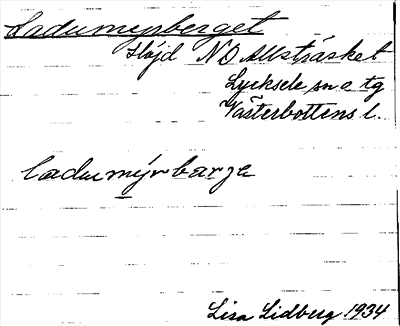 Ladumyrberget
Höjd NO Allsträsket
Lycksele sn o tg
Västerbottens l.
ladumýrbarʒa
Lisa Lidberg 1934